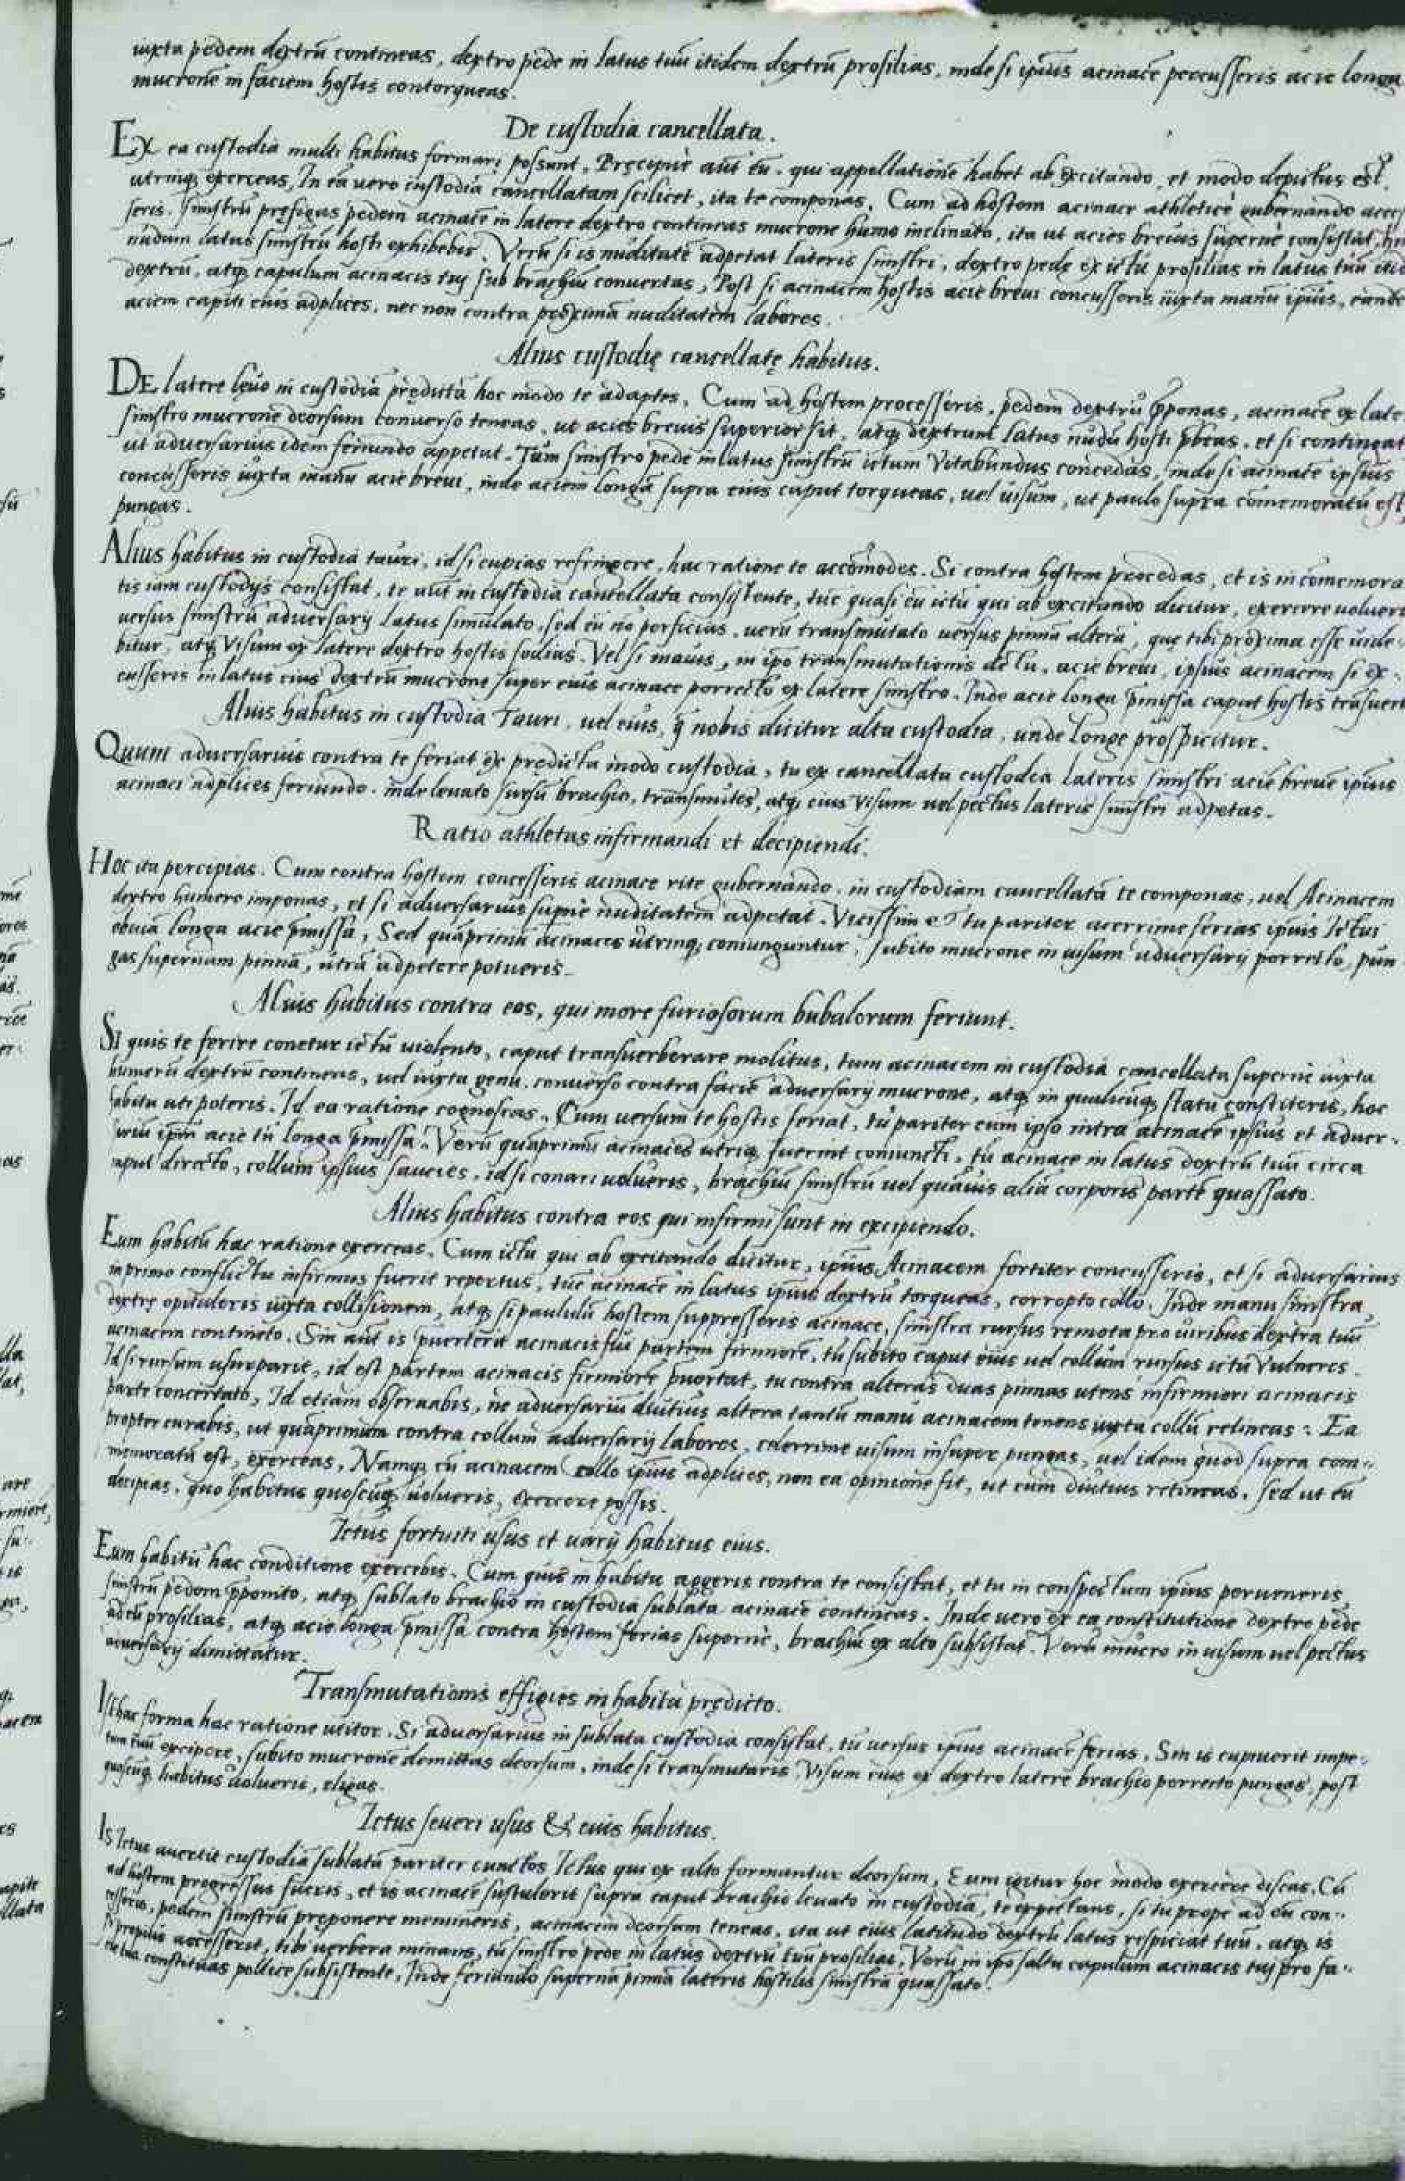 iuxta pedem dextrũ contineas, dextro pede in latus tuũ itidem dextrũ prosilias, inde si ipsius acinacẽ percusseris acie longa
mucronẽ in faciem hostis contorqueas.
De custodia cancellata.
Ex ea custodia multi habitus formari possunt, Pręcipuè aut̃ eũ, qui appellationẽ habet ab excitando, et modo depictus est,
utrinq; exerceas, In ea vero custodia cancellatam scilicet, ita te componas. Cum ad hostem acinace athleticè gubernando acces
seris, sinistrũ pręfigas pedem acinacẽ in latere dextro contineas mucrone humo inclinato, ita ut acies brevis supernè consistat,
nudum latus sinistrũ hosti exhibebis. Verũ si is nuditatẽ adpetat lateris sinistri, dextro pede ex ictu prosilias in latus tuũ
dextrũ, atq; capulum acinacis tuj sub brachiũ convertas, Post si acinacem hostis acie brevi concusseris iuxta manũ ipsius,
aciem capiti eius adplices, nec non contra proximã nuditatem labores.
Alius custodię cancellatę habitus.
DE latere lęuo in custodiã prędictã hoc modo te adaptes. Cum ad hostem processeris, pedem dextrũ p̃ponas, acinacẽ ex late
sinistro mucronẽ deorsum converso teneas, ut acies brevis superior sit, atq; dextrum latus nudũ hosti p̃beas, et si contingat
ut adversarius idem feriundo appetat. Tum sinistro pede in latus sinistrũ ictum vitabundus concedas, inde si acinacẽ ipsius
concusseris iuxta manũ acie brevi, inde aciem longã supra eius caput torqueas, uel uisum, ut paulo supra com̃emoratũ est,
pungas.
Alius habitus in custodia tauri, id si cupias refringere, hac ratione te accõmodes. Si contra hostem procedas, et is in com̃emora
tis iam custodijs consistat, te aut̃ in custodia cancellata consistente, tũc quasi eũ ictũ qui ab excitando dicitur, exercere uolueris
versus sinistrũ adversarij latus simulato, sed eũ nõ perficias, uerũ transmutato uersus pinnã alterã, quę tibi proxima esse uide-
bitur, atq; Visum ex latere dextro hostis fodias. Vel si mavis, in ip̃o transmutationis actu, acie brevi, ipsius acinacem si ex-
cusseris in latus eius dextrũ mucrone super eius acinace porrecto ex latere sinistro. Inde acie longa p̃missa caput hostis
Alius habitus in custodia Tauri, uel eius, q̃ nobis dicitur alta custodia, unde longe prospicitur.
Quum adversarius contra te feriat ex prędicta modo custodia, tu ex cancellata custodia lateris sinistri aciẽ brevẽ ipsius
acinaci adplices feriundo, inde leuato sursũ brachio, transmutes, atq; eius Visum uel pectus lateris sinistri adpetas.
Ratio athletas infirmandi et decipiendi.
Hoc ita percipias. Cum contra hostem concesseris acinace rite gubernando, in custodiam cancellatã te componas, uel Acinacem
dextro humero imponas, et si adversarius supnè nuditatem adpetat. Vicissim & tu pariter acerrime ferias ipsius Ictui
obuia longa acie p̃missa, Sed quãprimũ acinaces utrinq; coniunguntur, subito mucrone in uisum adversarij porrecto, pun-
gas supernam pinnã, utrã adpetere potueris.
Alius habitus contra eos, qui more furiosorum bubalorum feriunt.
Si quis te ferire conetur ictũ uiolento, caput transverberare molitus, tum acinacem in custodiã cancellata supernè iuxta
humerũ dextrũ contineris, uel iuxta genu, converso contra faciẽ adversarij mucrone, atq; in qualicũq; statu constiteris, hoc
habitu uti poteris. Id ea ratione cognoscas. Cum versum te hostis feriat, tu pariter cum ipso intra acinacẽ ipsius et adver-
ip̃m acie tũ longa p̃missa. Verũ quãprimũ acinaces utriq; fuerint coniuncti, tu acinacẽ in latus dextrũ tuũ circa
caput directo, collum ipsius saucies, id si conari uolueris, brachiũ sinistrũ uel quãuis aliã corporis partẽ quassato.
Alius habitus contra eos qui infirmi sunt in excipiendo.
Eum habitũ hac ratione exerceas. Cum ictu qui ab excitando dicitur, ipsius Acinacem fortiter concusseris, et si adversarius
in primo conflictu infirmus fuerit repertus, tũc acinacẽ in latus ipsius dextrũ torqueas, correpto collo. Inde manu sinistra
dextrę opituleris iuxta collisionem, atq; si paululũ hostem suppresseris acinace, sinistra rursus remota pro uiribus dextra tuũ
acinacem contineto. Sin aut̃ is p̃uertèrit acinacis sui partem firmiorẽ, tu subito caput eius uel collum rursus ictu vulneris.
Id si rursum usurparit, id est partem acinacis firmiorẽ p̃vertat, tu contra alteras duas pinnas utens infirmiori acinacis
parte concertato, Id etiam observabis, ne adversariũ diutius altera tantũ manu acinacem tenens iuxta collũ retineas: Ea
propter curabis, ut quãprimum contra collum adversarij labores, celerrime uisum insuper pungas, uel idem quod supra com-
memoratũ est, exerceas, Namq; cũ acinacem collo ipsius adplices, non ea opinione fit, ut eum diutius retineas, sed ut eũ
decipias, quo habitus quoscũq; uolueris, exercere possis.
Ictus fortuiti usus et varij habitus eius.
Eum habitũ hac conditione exercebis. Cum quis in habitu aggeris contra te consistat, et tu in conspectum ipsius perueneris,
sinistrũ pedem p̃ponito, atq; sublato brachio in custodia sublata acinacẽ contineas. Inde vero ex ea constitutione dextro pede
ad eũ prosilias, atq; acie longa p̃missa contra hostem ferias supernè, brachiũ ex alto subsistat. Verũ mucro in uisum uel pectus
adversarij dimittatur.
Transmutationis effigies in habitu prędicto.
Isthac forma hac ratione utitor. Si adversarius in sublata custodia consistat, tu versus ipsius acinacẽ ferias, Sin is cupiuerit impe-
tum tuũ excipere, subito mucronẽ demittas deorsum, inde si transmutaris Visum eius ex dextro latere brachio porrecto pungas, post
quoscũq; habitus uolueris, eligas.
Ictus seueri usus & euis habitus.
Is Ictus auertit custodia sublatũ pariter cunctos Ictus qui ex alto formantur deorsum, Eum igitur hoc modo exercere discas. Cũ
ad hostem progressus fueris, et is acinacẽ sustulerit supra caput brachio leuato in custodia, te expectans, si tu prope ad eũ con-
cesseris, pedem sinistrũ pręponere memineris, acinacem deorsum teneas, ita ut eius latitudo dextrũ latus respiciat tuũ, atq; is
si propius accesserit, tibi uerbera minans, tu sinistro pede in latus dextrũ tuũ prosilias, Verũ in ip̃o saltu capulum acinacis tuj pro fa-
cie tua constituas pollice subsistente, Inde feriundo supernã pinnã lateris hostilis sinistrã quassato.